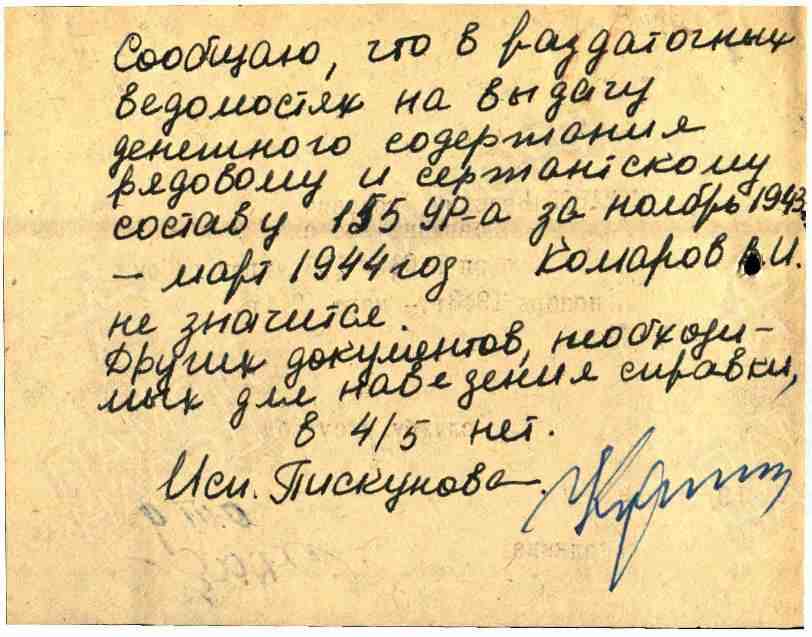 Сообщаю, что в раздаточных
ведомостях на выдачу
денежного содержания
рядовому и сержантскому
составу 155 УР-а за ноябрь 1943
– март 1944 год Комаров В.И.
не значится.
Других документов, необходи-
мых для наведения справки,
в 4/5 нет.
Исп. Пискунова